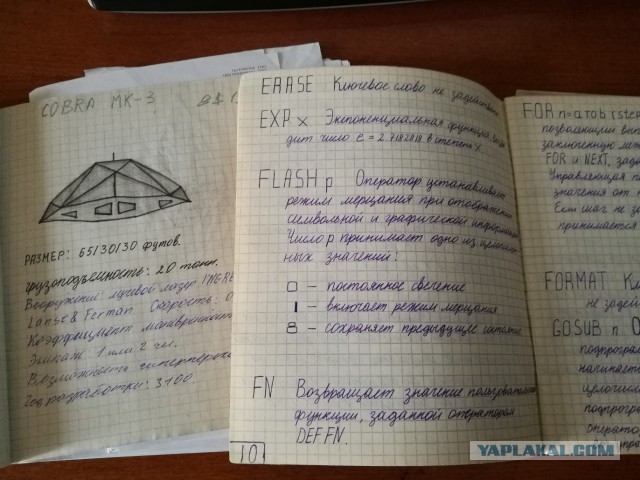 COBRA MK-3
РАЗМЕР: 65/30/30 футов.
грузоподъемность: 20 тонн.
Вооружение: лучевой лазер INGRE
Lance & Ferman. Скорость: 0
Коэффициент маневренности
Экипаж: 1 или 2 чел.
Возможность гиперперехо
Год разработки: 3100
ERASE Ключевое слово не задействов
EXP x Экспоненциальная функция,
дит число e = 2.7182818 в степень X.
FLASH p Оператор устанавливает
режим мерцания при отображении
символьной и графической информации
Число p принимает одно из
ных значений:
0 – постоянное свечение
1 – включает режим мерцания
8 – сохраняет предыдущее состояние
FN Возвращает значение пользователь
функции, заданной оператором
DEF FN.
101
FOR n=a TO b STEP
позволяющий вып
заключенную ме
FOR и NEXT, зада
Управляющая п
значения от
Если шаг не за
принимается
FORMAT К
не задей
GOSUB n О
подпрогра
начинается
целочисл
подпрогр
операто
YAPLAKAL.COM